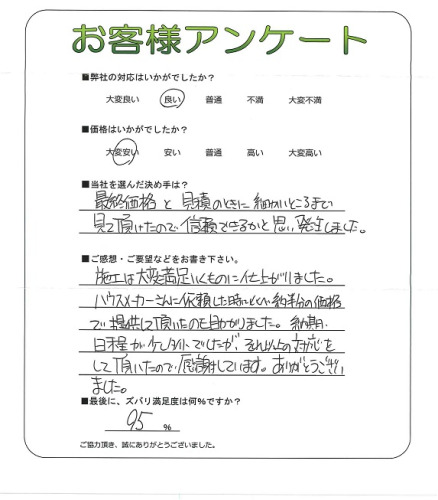 お客様アンケート
■弊社の対応はいかがでしたか？
大変良い 良い 普通 不満 大変不満
■価格はいかがでしたか？
大変安い 安い 普通 高い 大変高い
■当社を選んだ決め手は？
最終価格と見積のときに細かいところまで
見て頂けたので信頼できるかと思い発注しました。
■ご感想・ご要望などをお書き下さい。
施工は大変満足いくものに仕上がりました。
ハウスメーカーさんに依頼した時に比べ約半分の価格
で提供して頂いたのも助かりました。納期
日程がタイトでしたが、それ以上の対応を
して頂いたので、感謝しています。ありがとうござい
ました。
■最後に、ズバリ満足度は何％ですか？
95 ％
ご協力頂き、誠にありがとうございました。